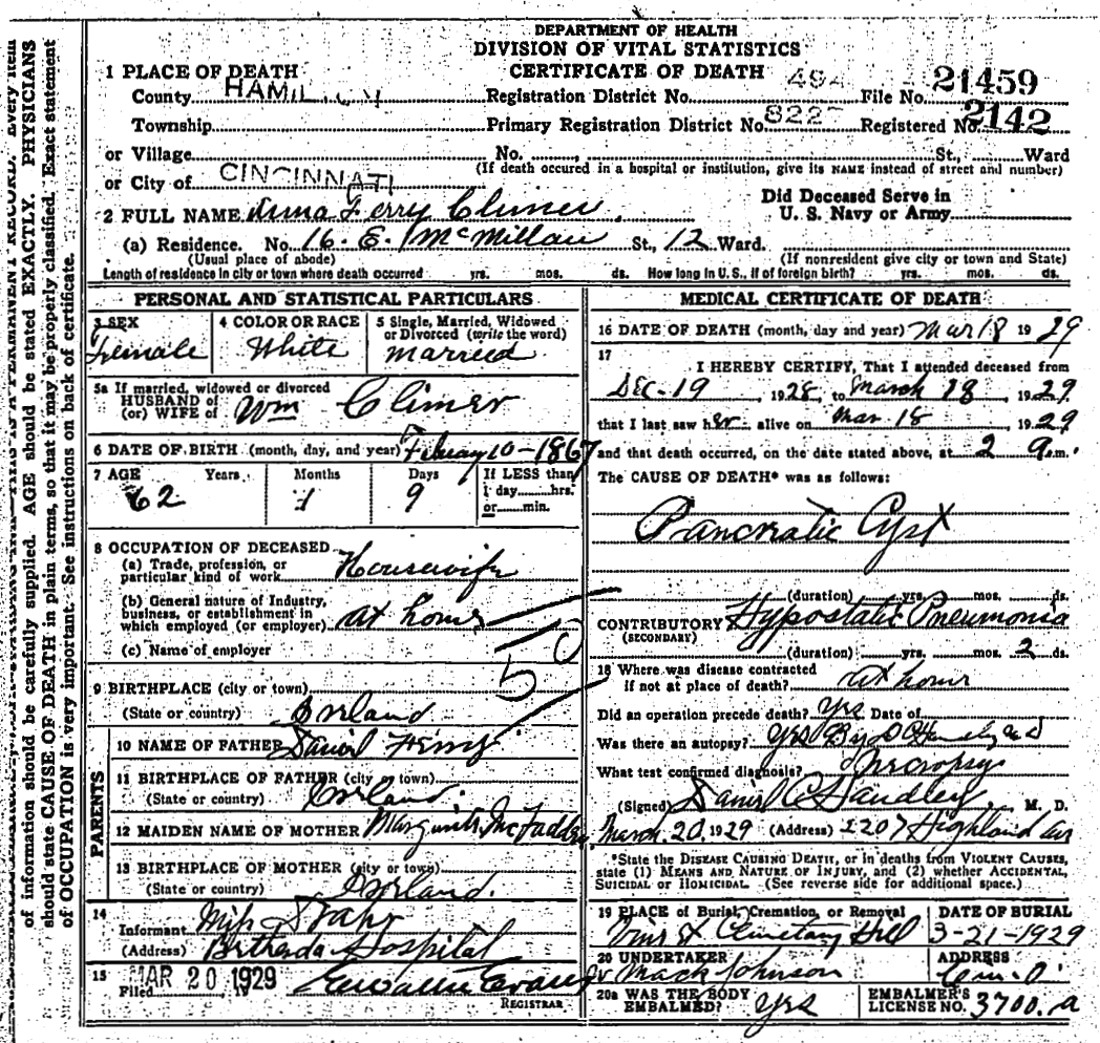 of information should be carefully supplied. AGE should be stated EXACTLY. PHYSICIANS
should state CAUSE OF DEATH in plain terms, so that it may be properly classified. Exact statement
of OCCUPATION is very important. See instructions on back of certificate.
DEPARTMENT OF HEALTH
DIVISION OF VITAL STATISTICS
CERTIFICATE OF DEATH
1 PLACE OF DEATH
County HAMILTON Registration District No. 494 File No. 21459
Township Primary Registration District No. 8227 Registered No. 2142
or Village No. St., Ward
(If death occured in a hospital or institution, give its NAME instead of street and number)
or City of CINCINNATI
Did Deceased Serve in
U. S. Navy or Army
2 FULL NAME Anna Ferry Climer
(a) Residence. No. 16 E. McMillan St., 12 Ward.
(Usual place of abode) (If nonresident give city or town and State)
Length of residence in city or town where death occurred yrs. mos. ds. How long in U. S., if of foreign birth? yrs. mos. ds.
PERSONAL AND STATISTICAL PARTICULARS
3 SEX
Female
4 COLOR OR RACE
White
5 Single, Married, Widowed
or Divorced (write the word)
Marreed
5a If married, widowed or divorced
HUSBAND of
(or) WIFE of Wm Climer
6 DATE OF BIRTH (month, day, and year) February 10-1867
7 AGE Years Months Days If LESS than
1 day hrs.
or min.
62 1 9
8 OCCUPATION OF DECEASED
(a) Trade, profession, or
particular kind of work Housewife
(b) General nature of Industry,
business, or establishment in
which employed (or employer) at home
(c) Name of employer
50
9 BIRTHPLACE (city or town)
(State or country) Ireland
PARENTS
10 NAME OF FATHER Daniel Ferry
11 BIRTHPLACE OF FATHER (city or town)
(State or country) Ireland
12 MAIDEN NAME OF MOTHER Marguite McFadden
13 BIRTHPLACE OF MOTHER (city or town)
(State or country) Ireland.
14
Informant Miss Stahr
(Address) Bethesda Hospital
15
Filed MAR 20 1929
REGISTRAR
MEDICAL CERTIFICATE OF DEATH
16 DATE OF DEATH (month, day and year) Mar 18 1929
17
I HEREBY CERTIFY, That I attended deceased from
Dec-19, 1928, to March 18, 1929
that I last saw her alive on Mar 18, 1929
and that death occurred, on the date stated above, at 2 a.m.
The CAUSE OF DEATH* was as follows:
Pancratic Cyst
(duration) yrs. mos. ds.
CONTRIBUTORY Hypostatic Pneumonia
(SECONDARY)
(duration) yrs. mos. 2 ds.
18 Where was disease contracted
if not at place of death? at home
Did an operation precede death? Yes Date of
Was there an autopsy? Yes By
What test confirmed diagnosis? Necropsy
(Signed) Daniel C Handley, M. D.
March 20, 1929 (Address) 2207 Highland Av
*State the DISEASE CAUSING DEATH, or in deaths from VIOLENT CAUSES,
state (1) MEANS AND NATURE OF INJURY, and (2) whether ACCIDENTAL,
SUICIDAL or HOMICIDAL. (See reverse side for additional space.)
19 PLACE of Burial, Cremation, or Removal
Hill
DATE OF BURIAL
3-21-1929
20 UNDERTAKER
Mack Johnson
ADDRESS
Cin. O.
20a WAS THE BODY
EMBALMED? Yes
EMBALMER'S
LICENSE NO. 3700-a